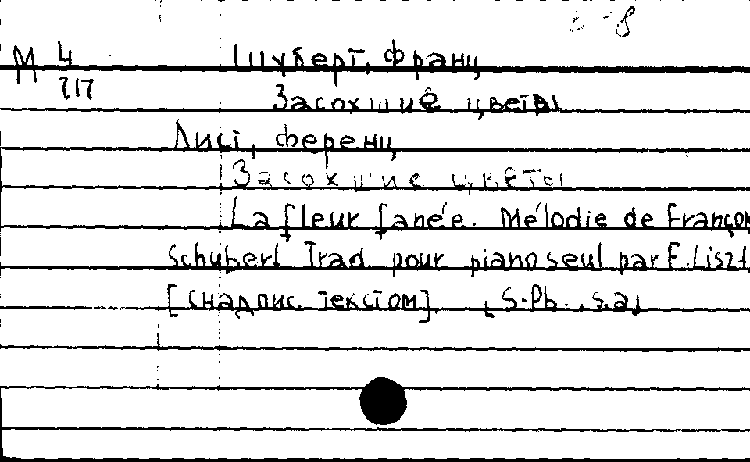 М 4 Шуберт, Франц
717 Засохшие цветы
Лист, Ференц
Засохшие цветы
La fleur fanée. Mélodie de Françon
Schubert Trad. pour piano seul par F. Liszt
[С надпис. текстом]. [S.-Pb., s.a.]